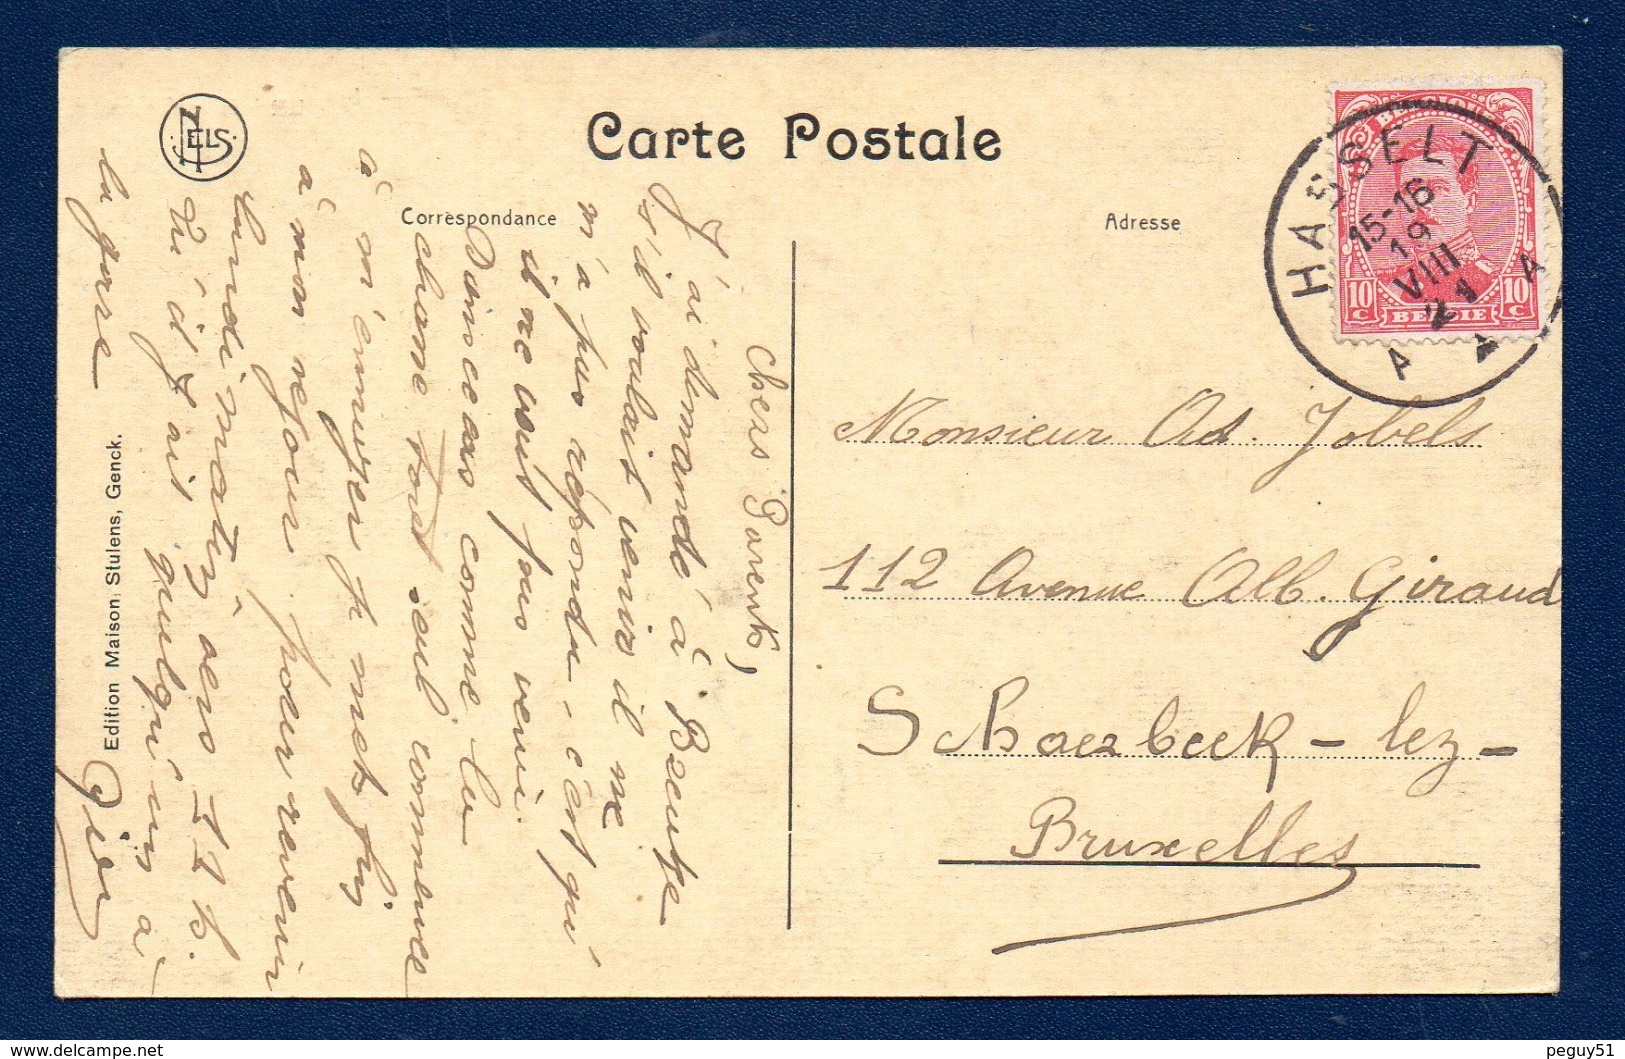 NELS
Carte Postale
Correspondance
Adresse
HASSELT
15-16
19
VIII
21
A A
BELGIE
10 c
10 c
Chers Parents,
J'ai demandé à
s'il voulait venir il ne
m'a pas répondu, c'est qu'
il ne veut pas venir.
comme la
chasse tout seul commence
à m'ennuyer je mets fin
à mon séjour pour revenir
lundi matin vers 11 h.
Vu d'J ait quelqu'un à
la gare
Edition Maison Stulens, Genck.
Monsieur Ad. Jobels
112 Avenue Alb. Giraud
Schaerbeek-lez-
Bruxelles
peguy51
www.delcampe.net